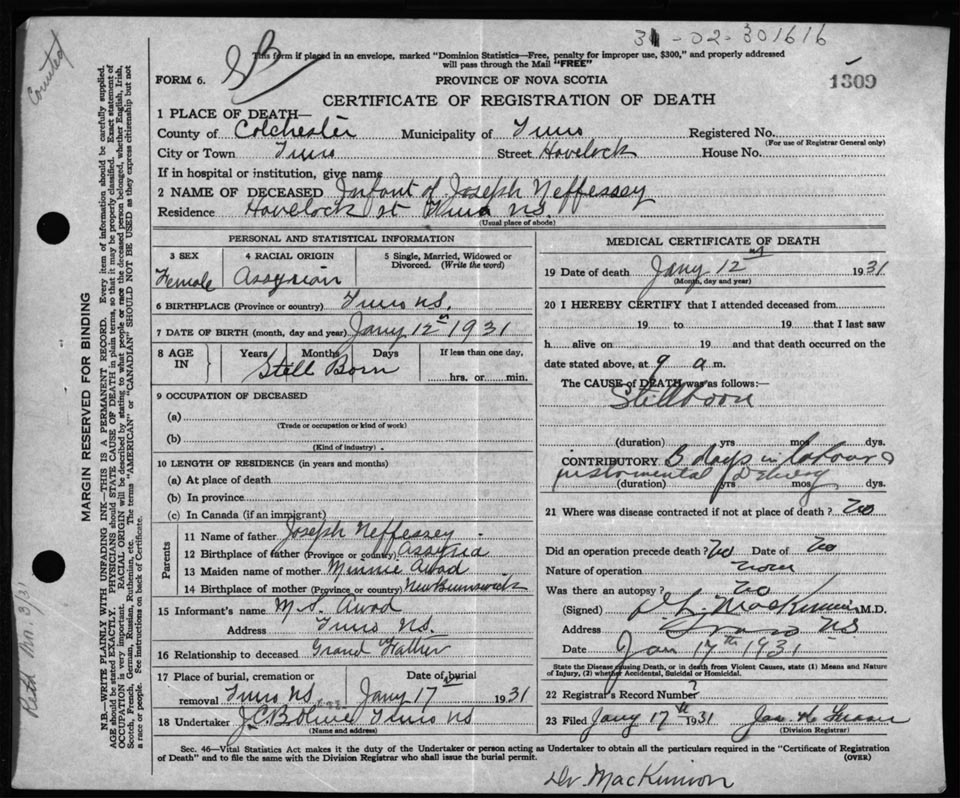 31-02-301616
SB
This form if placed in an envelope, marked "Dominion Statistics—Free, penalty for improper use, $300," and properly addressed
will pass through the Mail "FREE"
FORM 6.
PROVINCE OF NOVA SCOTIA
1309
CERTIFICATE OF REGISTRATION OF DEATH
1 PLACE OF DEATH—
County of Colchester Municipality of Truro Registered No.
(For use of Registrar General only)
City or Town Truro Street Havelock House No.
If in hospital or institution, give name
2 NAME OF DECEASED Infant of Joseph Neffessey
Residence Havelock st Truro N.S.
(Usual place of abode)
PERSONAL AND STATISTICAL INFORMATION
3 SEX
Female
4 RACIAL ORIGIN
Assyrian
5 Single, Married, Widowed or
Divorced. (Write the word)
6 BIRTHPLACE (Province or country) Truro N.S.
7 DATE OF BIRTH (month, day and year) Jany 12 1931
8 AGE
IN
Years Months Days
Still Born
If less than one day,
hrs. or min.
9 OCCUPATION OF DECEASED
(a)
(Trade or occupation or kind of work)
(b)
(Kind of industry)
10 LENGTH OF RESIDENCE (in years and months)
(a) At place of death
(b) In province
(c) In Canada (if an immigrant)
Parents
11 Name of father Joseph Neffessey
12 Birthplace of father (Province or country) Assyria
13 Maiden name of mother Minnie Awad
14 Birthplace of mother (Province or country) New Brunswick
15 Informant's name M.S. Awad
Address Truro N.S.
16 Relationship to deceased Grand Father
17 Place of burial, cremation or Date of burial
removal Truro N.S. Jany 17 1931
18 Undertaker J.C.B. Truro N.S.
(Name and address)
MEDICAL CERTIFICATE OF DEATH
19 Date of death Jany 12 1931
(Month, day and year)
20 I HEREBY CERTIFY that I attended deceased from
19 to 19 that I last saw
h alive on 19 and that death occurred on the
date stated above, at 9 a m.
The CAUSE of DEATH was as follows:—
Stillborn
(duration) yrs mos dys.
CONTRIBUTORY 3 days in labour
instrumental delivery
(duration) yrs mos dys.
21 Where was disease contracted if not at place of death? No
Did an operation precede death? No Date of No
Nature of operation none
Was there an autopsy? No
(Signed) MacKinnon M.D.
Address Truro NS
Date Jan 17th 1931
State the Disease causing Death, or in death from Violent Causes, state (1) Means and Nature
of Injury, (2) whether Accidental, Suicidal or Homicidal.
22 Registrar's Record Number
23 Filed Jany 17th 1931 Jas. H. Fraser
(Division Registrar)
Sec. 46—Vital Statistics Act makes it the duty of the Undertaker or person acting as Undertaker to obtain all the particulars required in the "Certificate of Registration
of Death" and to file the same with the Division Registrar who shall issue the burial permit.
(OVER)
Dr. MacKinnon
Counted
MARGIN RESERVED FOR BINDING
N.B.—WRITE PLAINLY WITH UNFADING INK—THIS IS A PERMANENT RECORD. Every item of information should be carefully supplied.
AGE should be stated EXACTLY. PHYSICIANS should STATE CAUSE OF DEATH in plain terms, so that it may be properly classified. Exact statement of
OCCUPATION is very important. RACIAL ORIGIN will be described by stating to what people or race the deceased person belonged, whether English, Irish,
Scotch, French, German, Russian, Ruthenian, etc. The terms "AMERICAN" or "CANADIAN" SHOULD NOT BE USED as they express citizenship but not
a race or people. See instructions on back of Certificate.